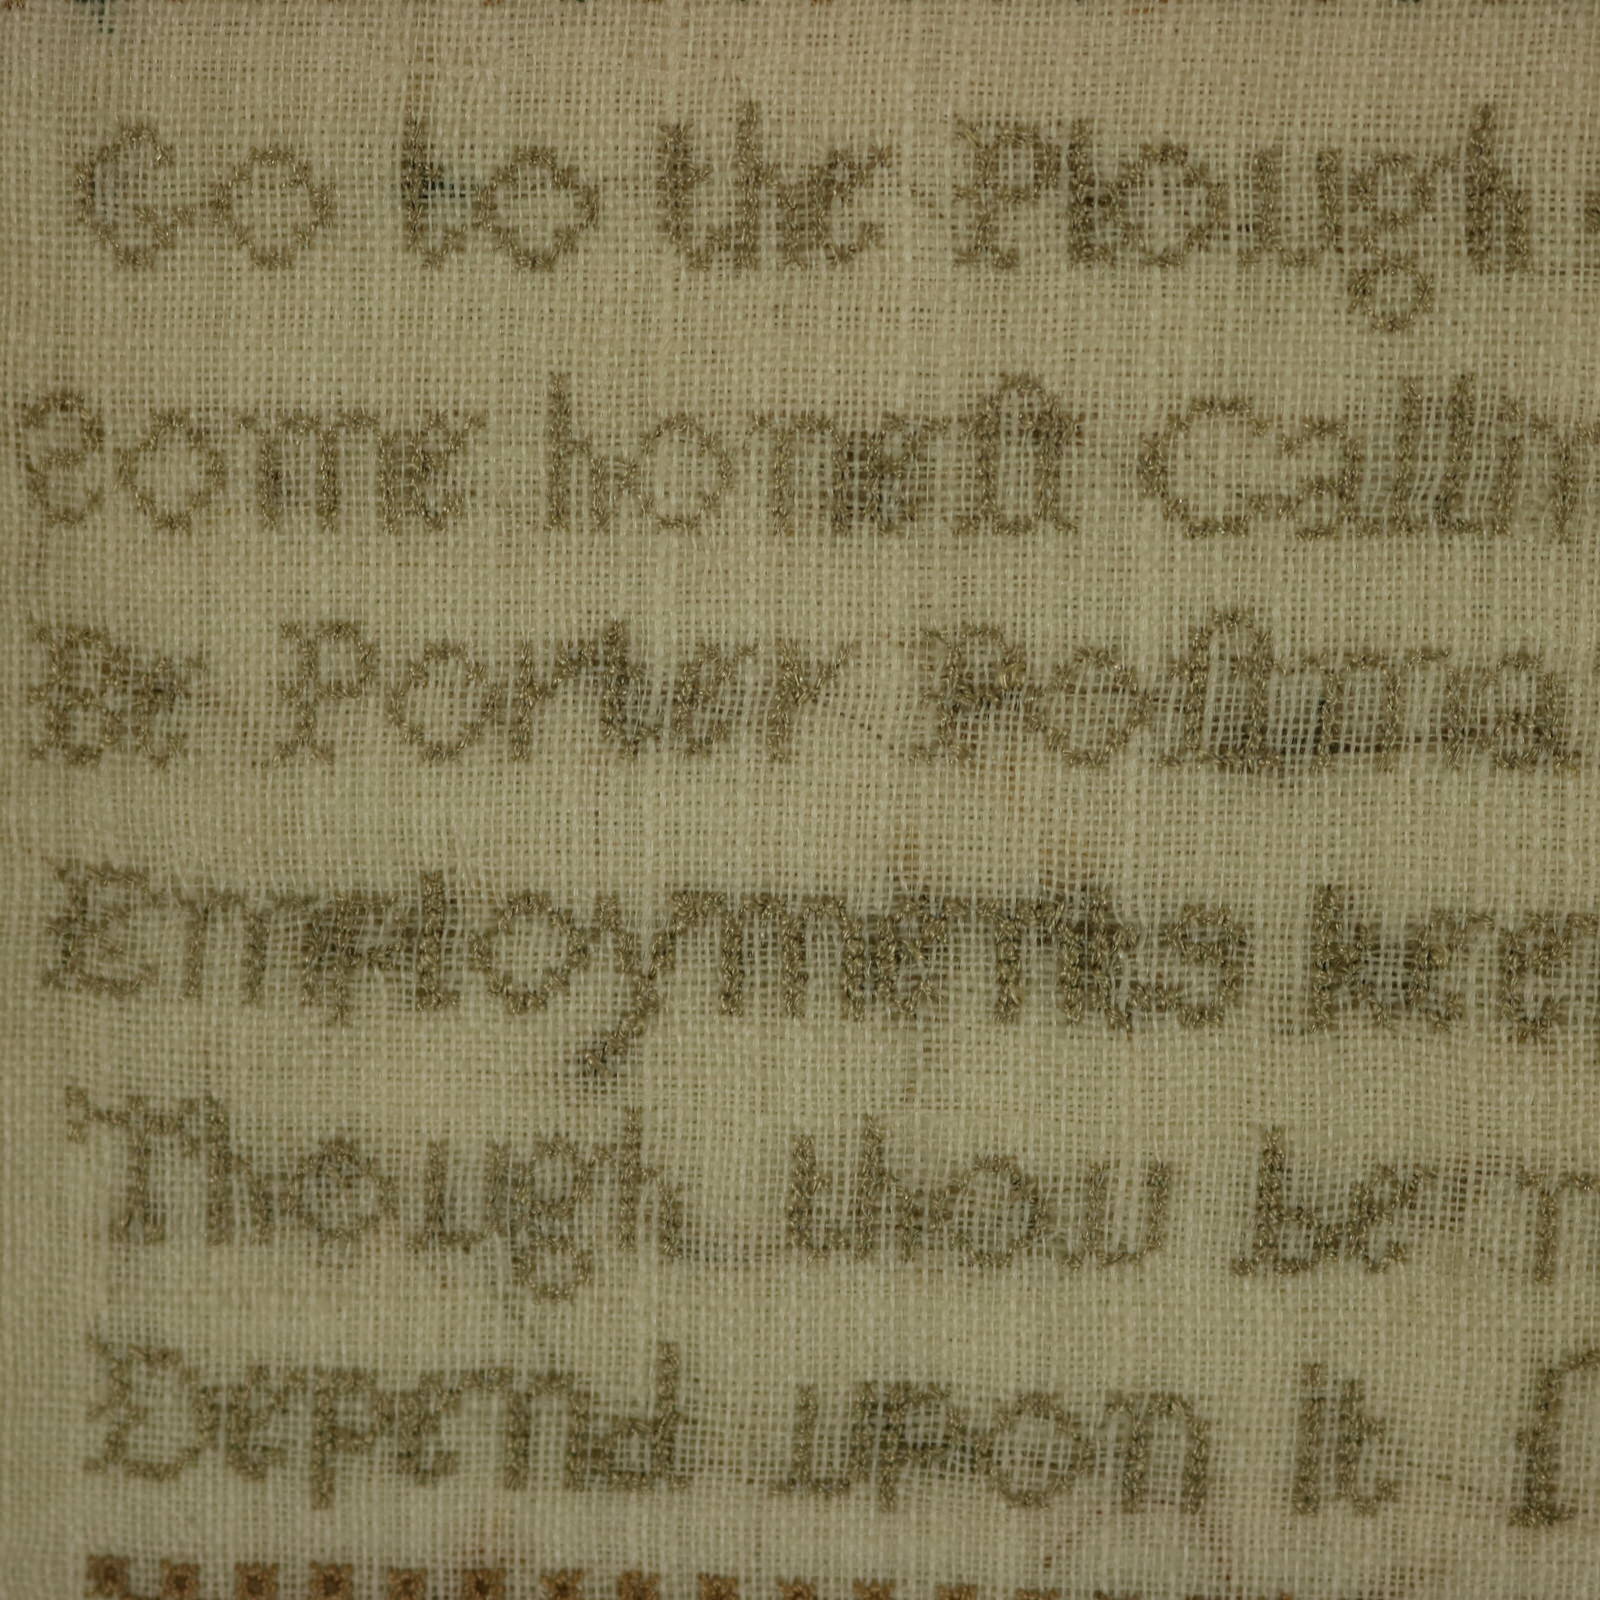 Go to the Plough
Some honest Callin
Be Porter Postma
Employments kee
Though thou be n
Depend upon it